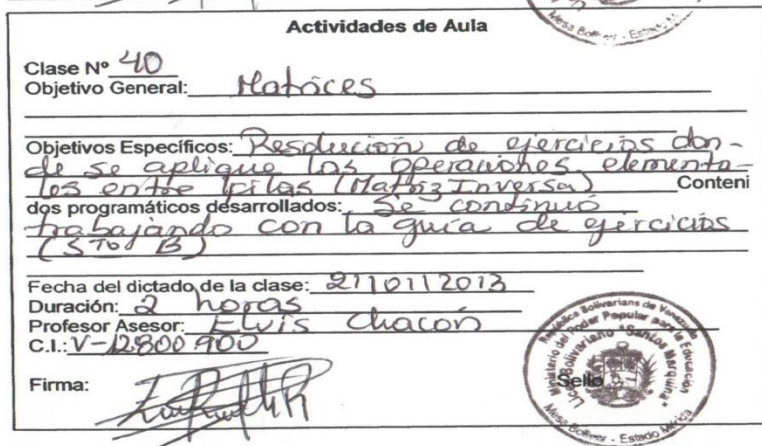 Mesa Bolívar - Estado M
Actividades de Aula
Clase Nº 40
Objetivo General: Matrices
Objetivos Específicos: Resolución de ejercicios don-
de se aplique las operaciones elementa-
les entre filas (Matriz Inversa) Conteni
dos programáticos desarrollados: Se continuó
trabajando con la guía de ejercicios
(5to B)
Fecha del dictado de la clase: 21/01/2013
Duración: 2 horas
Profesor Asesor: Elvis Chacón
C.I.: V-12800900
Firma:
Sello
República Bolivariana de Venezuela
Ministerio del Poder Popular para la Educación
Lic. Bolivariano "Santos Marquina"
Mesa Bolívar - Estado Mérida